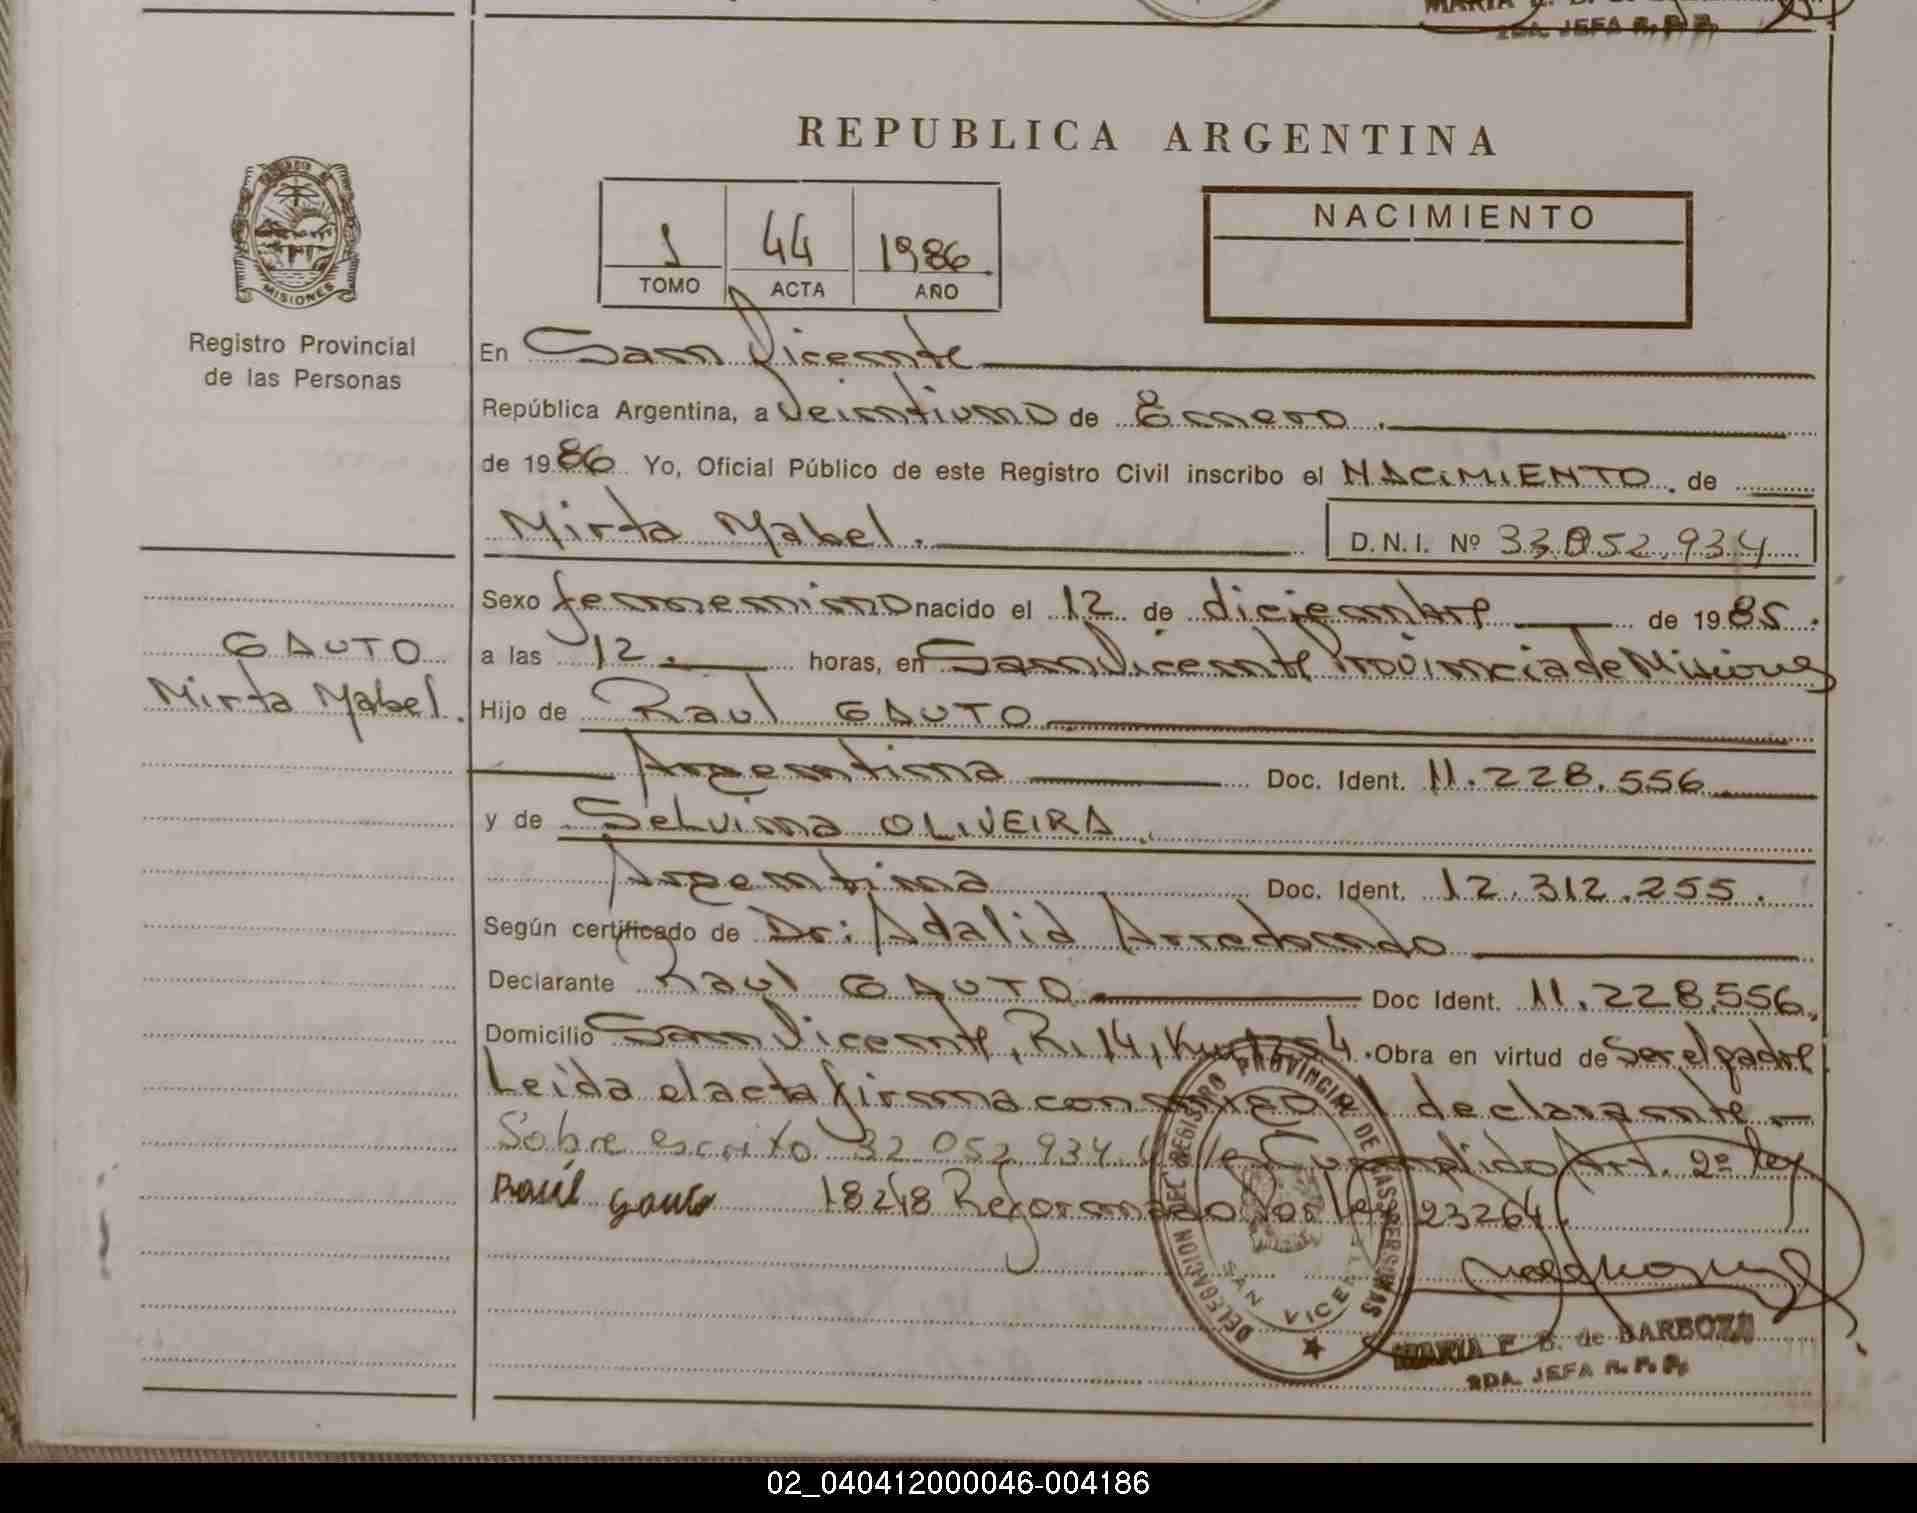 MARIA
2DA. JEFA R. P. P.
REPUBLICA ARGENTINA
NACIMIENTO
1 44 1986
TOMO ACTA AÑO
MISIONES
Registro Provincial
de las Personas
En San Vicente
República Argentina, a Veintiuno de Enero
de 1986 Yo, Oficial Público de este Registro Civil inscribo el NACIMIENTO de
Mirta Mabel. D.N.I. Nº 33.052.934
Sexo femenino nacido el 12 de diciembre de 1985.
a las 12. horas, en San Vicente Provincia de Misiones
GAUTO
Mirta Mabel.
Hijo de Raul GAUTO
Argentina Doc. Ident. 11.228.556
y de Selvina OLIVEIRA.
Argentina Doc. Ident. 12.312.255.
Según certificado de Dr: Adalid Arredondo
Declarante Raul GAUTO Doc Ident. 11.228.556.
Domicilio San Vicente, R. 14, Km 1254. Obra en virtud de Ser el padre
Leida el acta firma conmigo el declarante.
Sobre escrito 32 052 934. Vale Cumplido Art. 2º ley
Raúl Gauto 18248 Reformado Por ley 23264.
DELEGACION DEL REGISTRO PROVINCIAL DE LAS PERSONAS
SAN VICENTE
MARIA E. B. de BARBOZA
2DA. JEFA R. P. P.
02_040412000046-004186